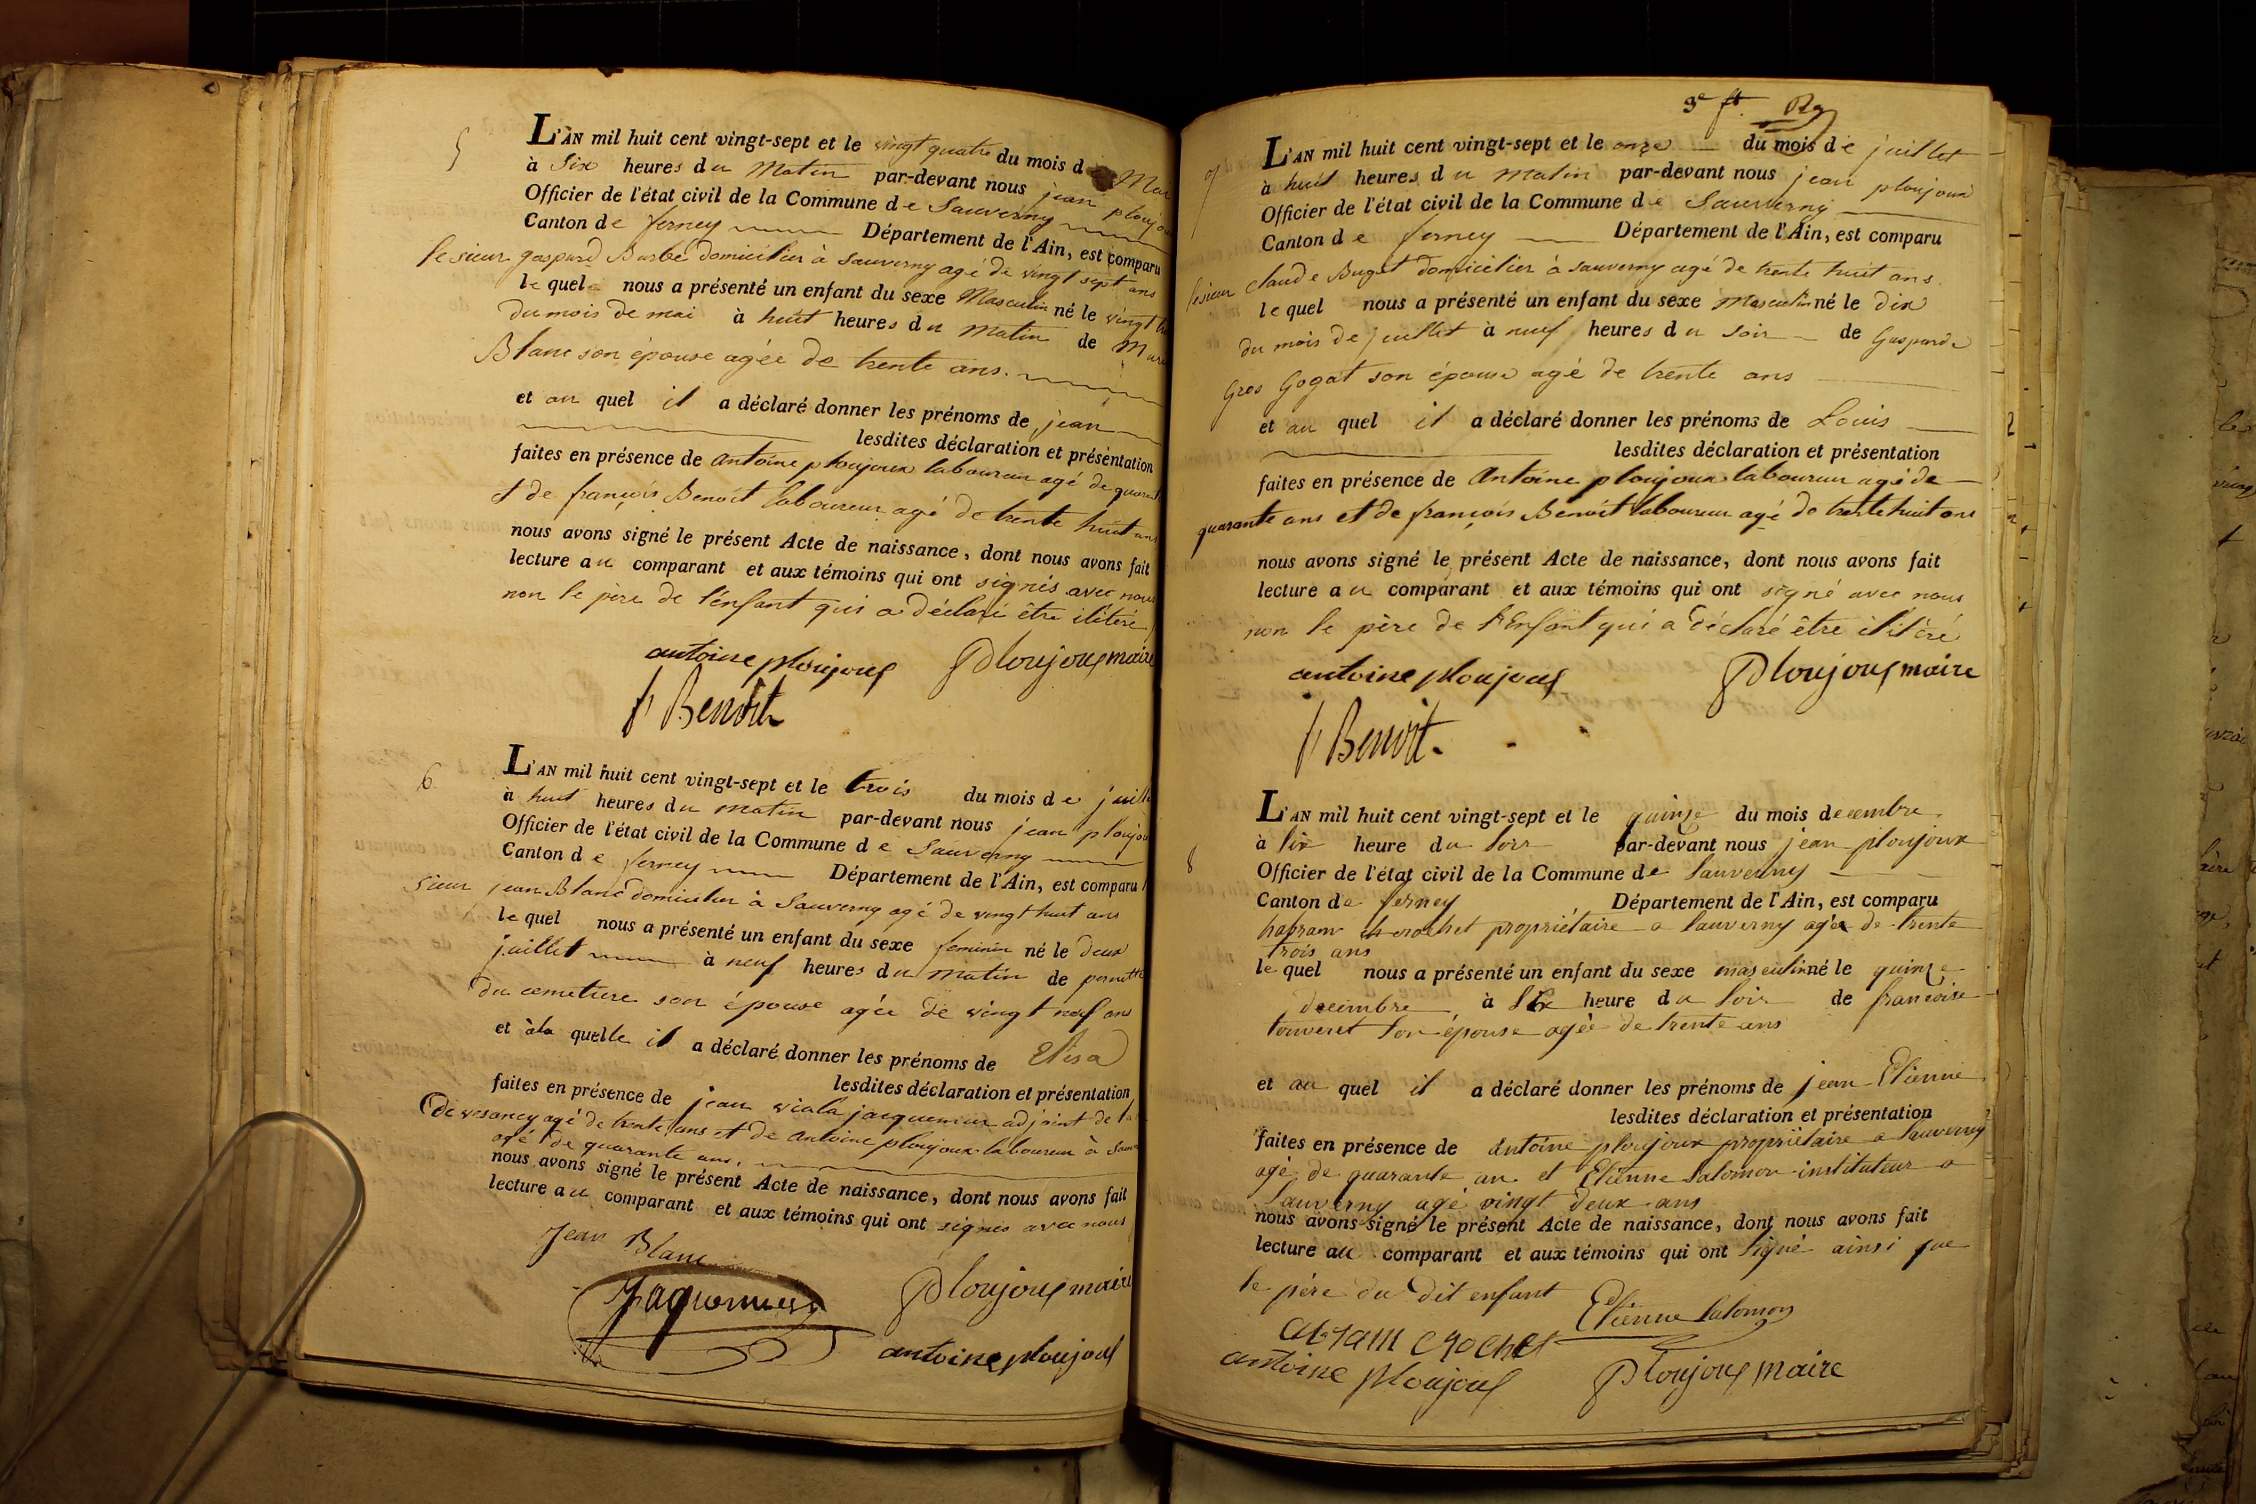 5
L'AN mil huit cent vingt-sept et le vingt quatre du mois de Mai
à Six heures du Matin par-devant nous jean ploujoux
Officier de l'état civil de la Commune de Sauverny
Canton de ferney Département de l'Ain, est comparu
le sieur gaspard Barbé domicilier à Sauverny agé de vingt sept ans
lequel nous a présenté un enfant du sexe Masculin né le vingt
du mois de mai à huit heures du Matin de
Blanc son épouse agée de trente ans.
et au quel il a déclaré donner les prénoms de jean
lesdites déclaration et présentation
faites en présence de antoine ploujoux laboureur agé de quarante
et de françois Benoit laboureur agé de trente huit ans
nous avons signé le présent Acte de naissance, dont nous avons fait
lecture au comparant et aux témoins qui ont signés avec nous
non le père de l'enfant qui a déclaré être ilitéré
antoine ploujoux Ploujoux maire
f Benoit
6
L'AN mil huit cent vingt-sept et le trois du mois de juillet
à huit heures du matin par-devant nous jean ploujoux
Officier de l'état civil de la Commune de Sauverny
Canton de ferney Département de l'Ain, est comparu
sieur jean Blanc domicilier à Sauverny agé de vingt huit ans
lequel nous a présenté un enfant du sexe feminin né le deux
juillet à neuf heures du matin de pernette
du cemetiere son épouse agée de vingt neuf ans
et à la quelle il a déclaré donner les prénoms de Elisa
lesdites déclaration et présentation
faites en présence de jean viala jacquemier adjoint de
de vesancy agé de trente ans et de antoine ploujoux laboureur à
agé de quarante ans.
nous avons signé le présent Acte de naissance, dont nous avons fait
lecture au comparant et aux témoins qui ont signés avec nous
Jean Blanc
Jaquemier Ploujoux maire
antoine ploujoux
3e ft.
7
L'AN mil huit cent vingt-sept et le onze du mois de juillet
à huit heures du matin par-devant nous jean ploujoux
Officier de l'état civil de la Commune de Sauverny
Canton de ferney Département de l'Ain, est comparu
le sieur claude Buget domicilier à sauverny agé de trente huit ans.
lequel nous a présenté un enfant du sexe masculin né le dix
du mois de juillet à neuf heures du soir de Gasparde
Gros Gogat son épouse agé de trente ans
et au quel il a déclaré donner les prénoms de Louis
lesdites déclaration et présentation
faites en présence de Antoine ploujoux laboureur agé de
quarante ans et de françois Benoit laboureur agé de trente huit ans
nous avons signé le présent Acte de naissance, dont nous avons fait
lecture au comparant et aux témoins qui ont signé avec nous
non le père de l'Enfant qui a déclaré être ilitéré
antoine ploujoux Ploujoux maire
f Benoit
8
L'AN mil huit cent vingt-sept et le quinze du mois decembre
à six heure du soir par-devant nous jean ploujoux
Officier de l'état civil de la Commune de Sauverny
Canton de ferney Département de l'Ain, est comparu
crochet propriétaire a Sauverny agée de trente
trois ans
lequel nous a présenté un enfant du sexe masculin né le quinze
decembre à Six heure du soir de francoise
touveret son épouse agée de trente ans
et au quel il a déclaré donner les prénoms de jean Etienne
lesdites déclaration et présentation
faites en présence de antoine ploujoux propriétaire a Sauverny
agé de quarante an et Etienne Salomon instituteur a
Sauverny agé vingt deux ans
nous avons signé le présent Acte de naissance, dont nous avons fait
lecture au comparant et aux témoins qui ont signé ainsi que
le père du dit enfant
Etienne Salomon
abram crochet
antoine ploujoux Ploujoux maire